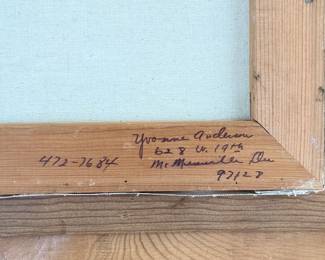 Yvonne Anderson
628 W. 19th
472-7684
McMinnville Or
97128